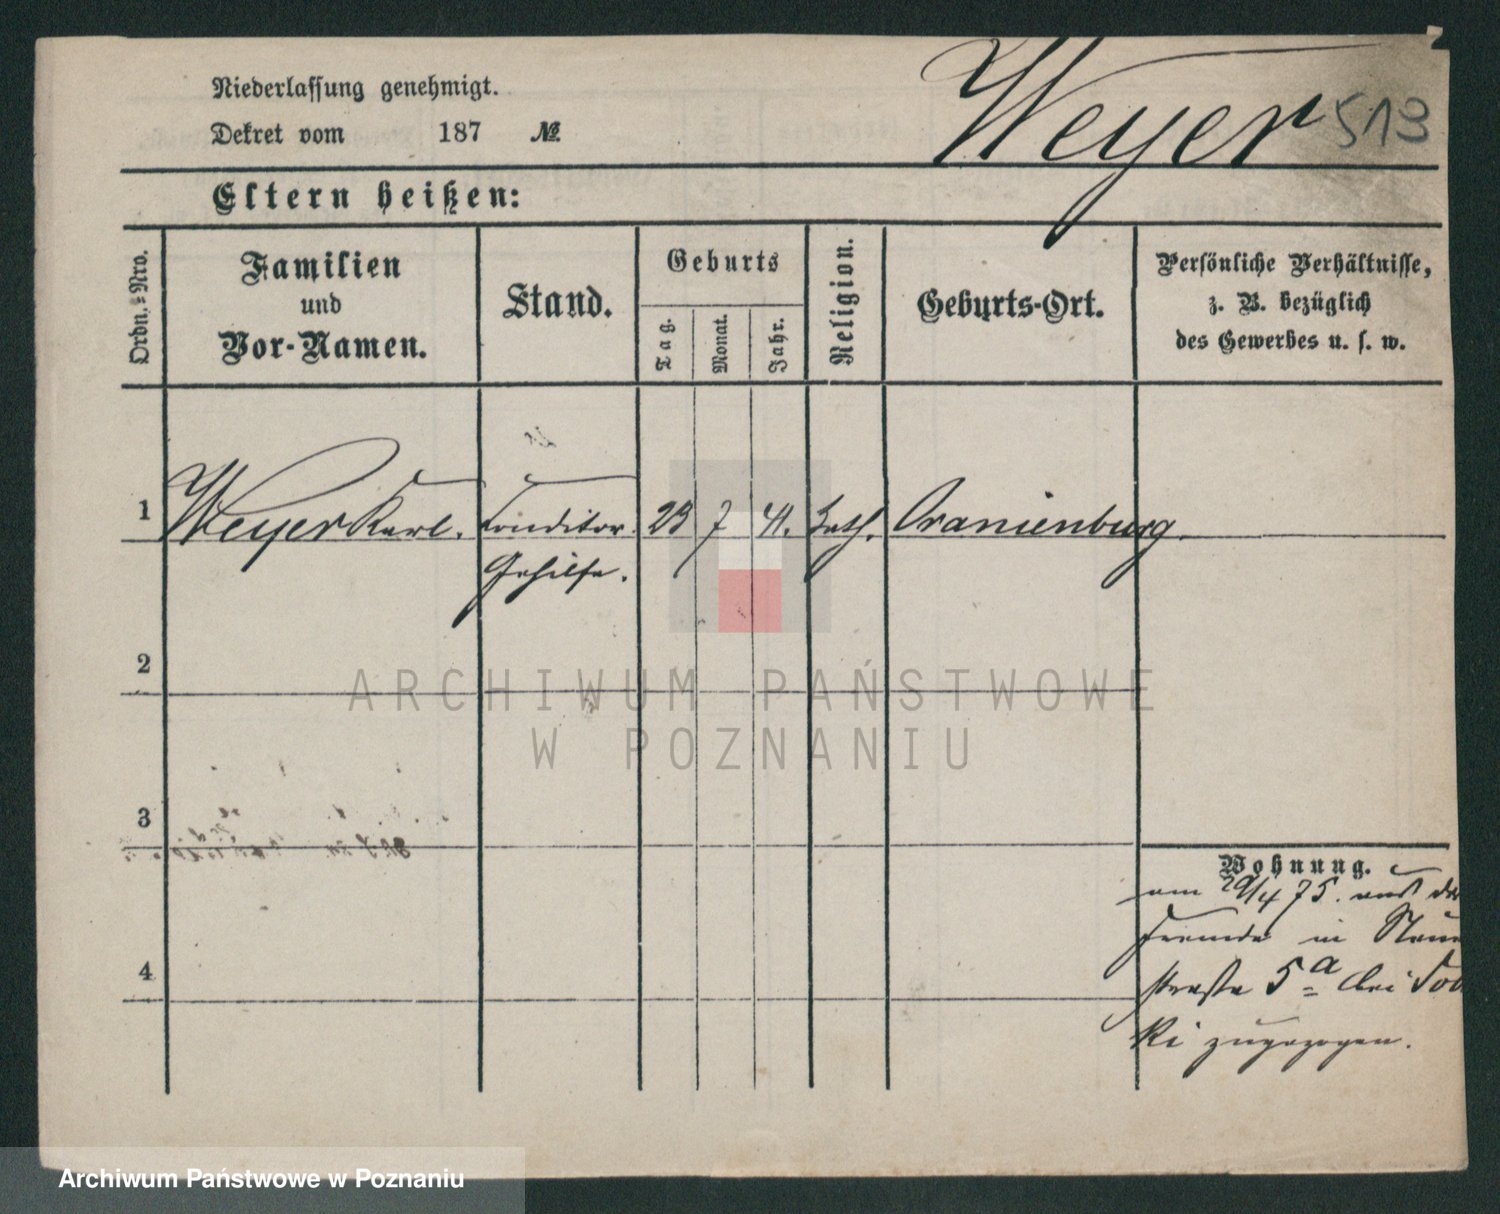 Weyer 513
Niederlassung genehmigt.
Dekret vom 187 №
Eltern heißen:
Ordn.-Nro.
Familien
und
Vor-Namen.
Stand.
Geburts
Tag.
Monat.
Jahr.
Religion.
Geburts-Ort.
Persönliche Verhältnisse,
z. B. bezüglich
des Gewerbes u. s. w.
1 Weyer Karl. Conditor 23 7 41. kath. Oranienburg.
Gehilfe.
2
3
4
Wohnung.
am 29/4 75. aus der
Fremde in
straße 5a bei
ki zugezogen.
ARCHIWUM PAŃSTWOWE
W POZNANIU
Archiwum Państwowe w Poznaniu